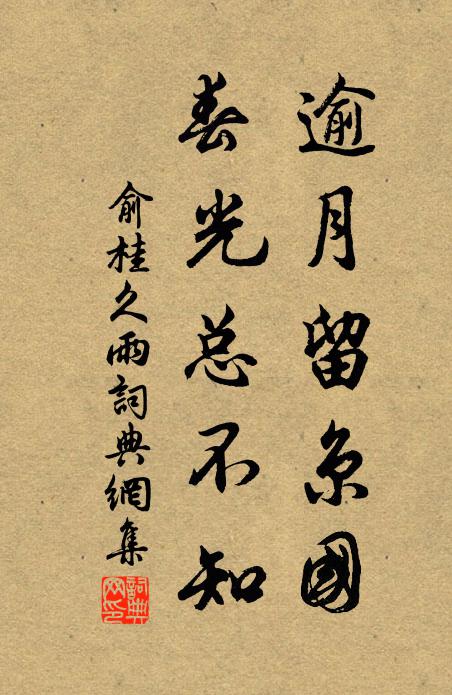 逾月留京國
春光总不知
俞桂久雨詞典網集
詞典网印